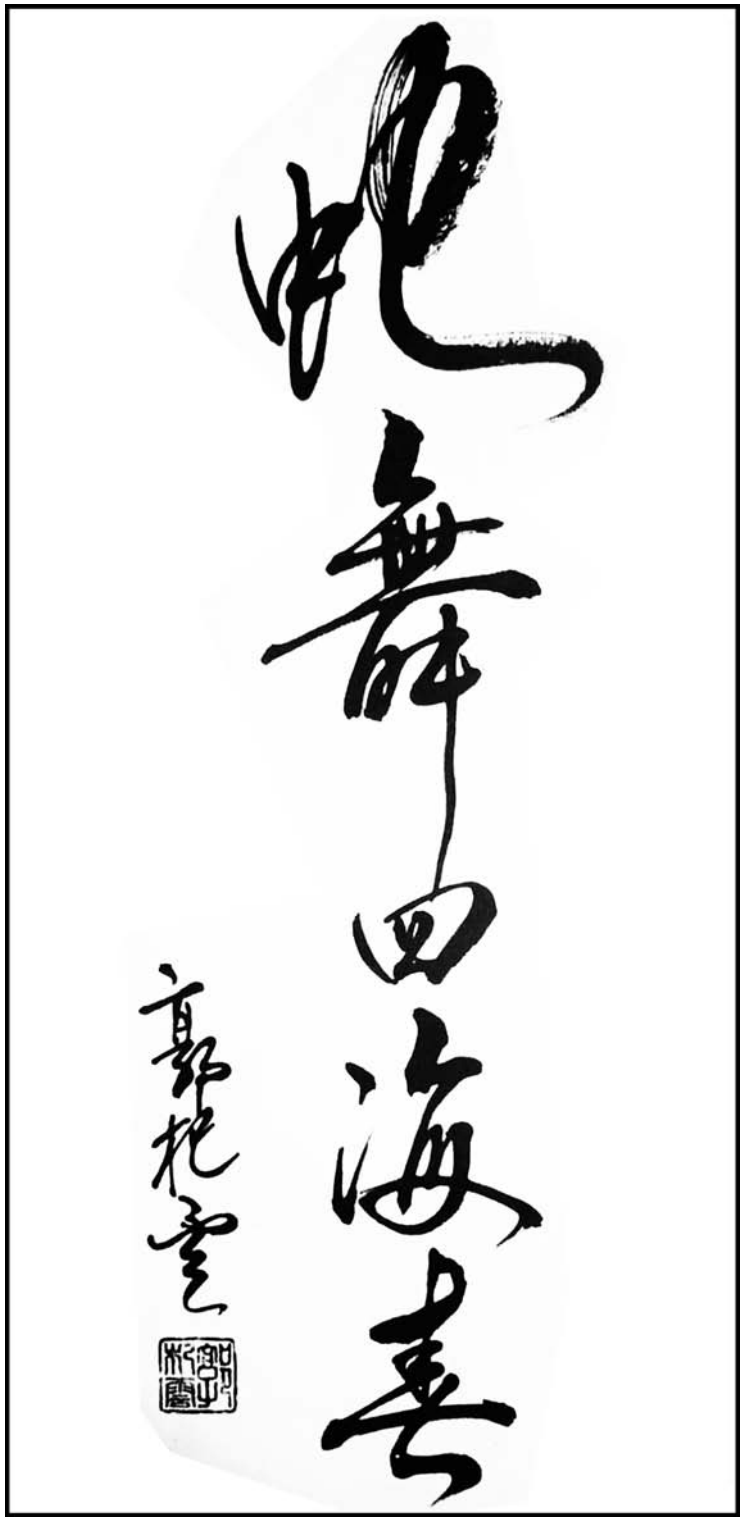 蛇舞四海春
郭杞雲